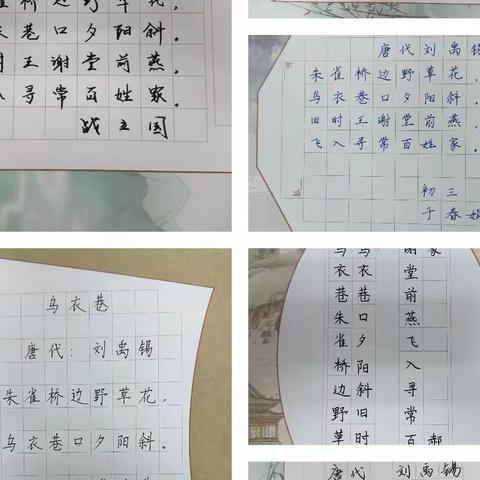 雀桥边野草花，
衣巷口夕阳斜。
时王谢堂前燕，
入寻常百姓家。
战立国
唐代刘禹锡
朱雀桥边野草花，
乌衣巷口夕阳斜。
旧时王谢堂前燕，
飞入寻常百姓家。
初三
于春娟
乌衣巷
唐代：刘禹锡
朱雀桥边野草花，
乌衣巷口夕阳斜。
谢堂前燕飞入寻常百
乌衣巷口夕阳斜旧时
乌衣巷朱雀桥边野草
家
郝
唐代 刘禹锡